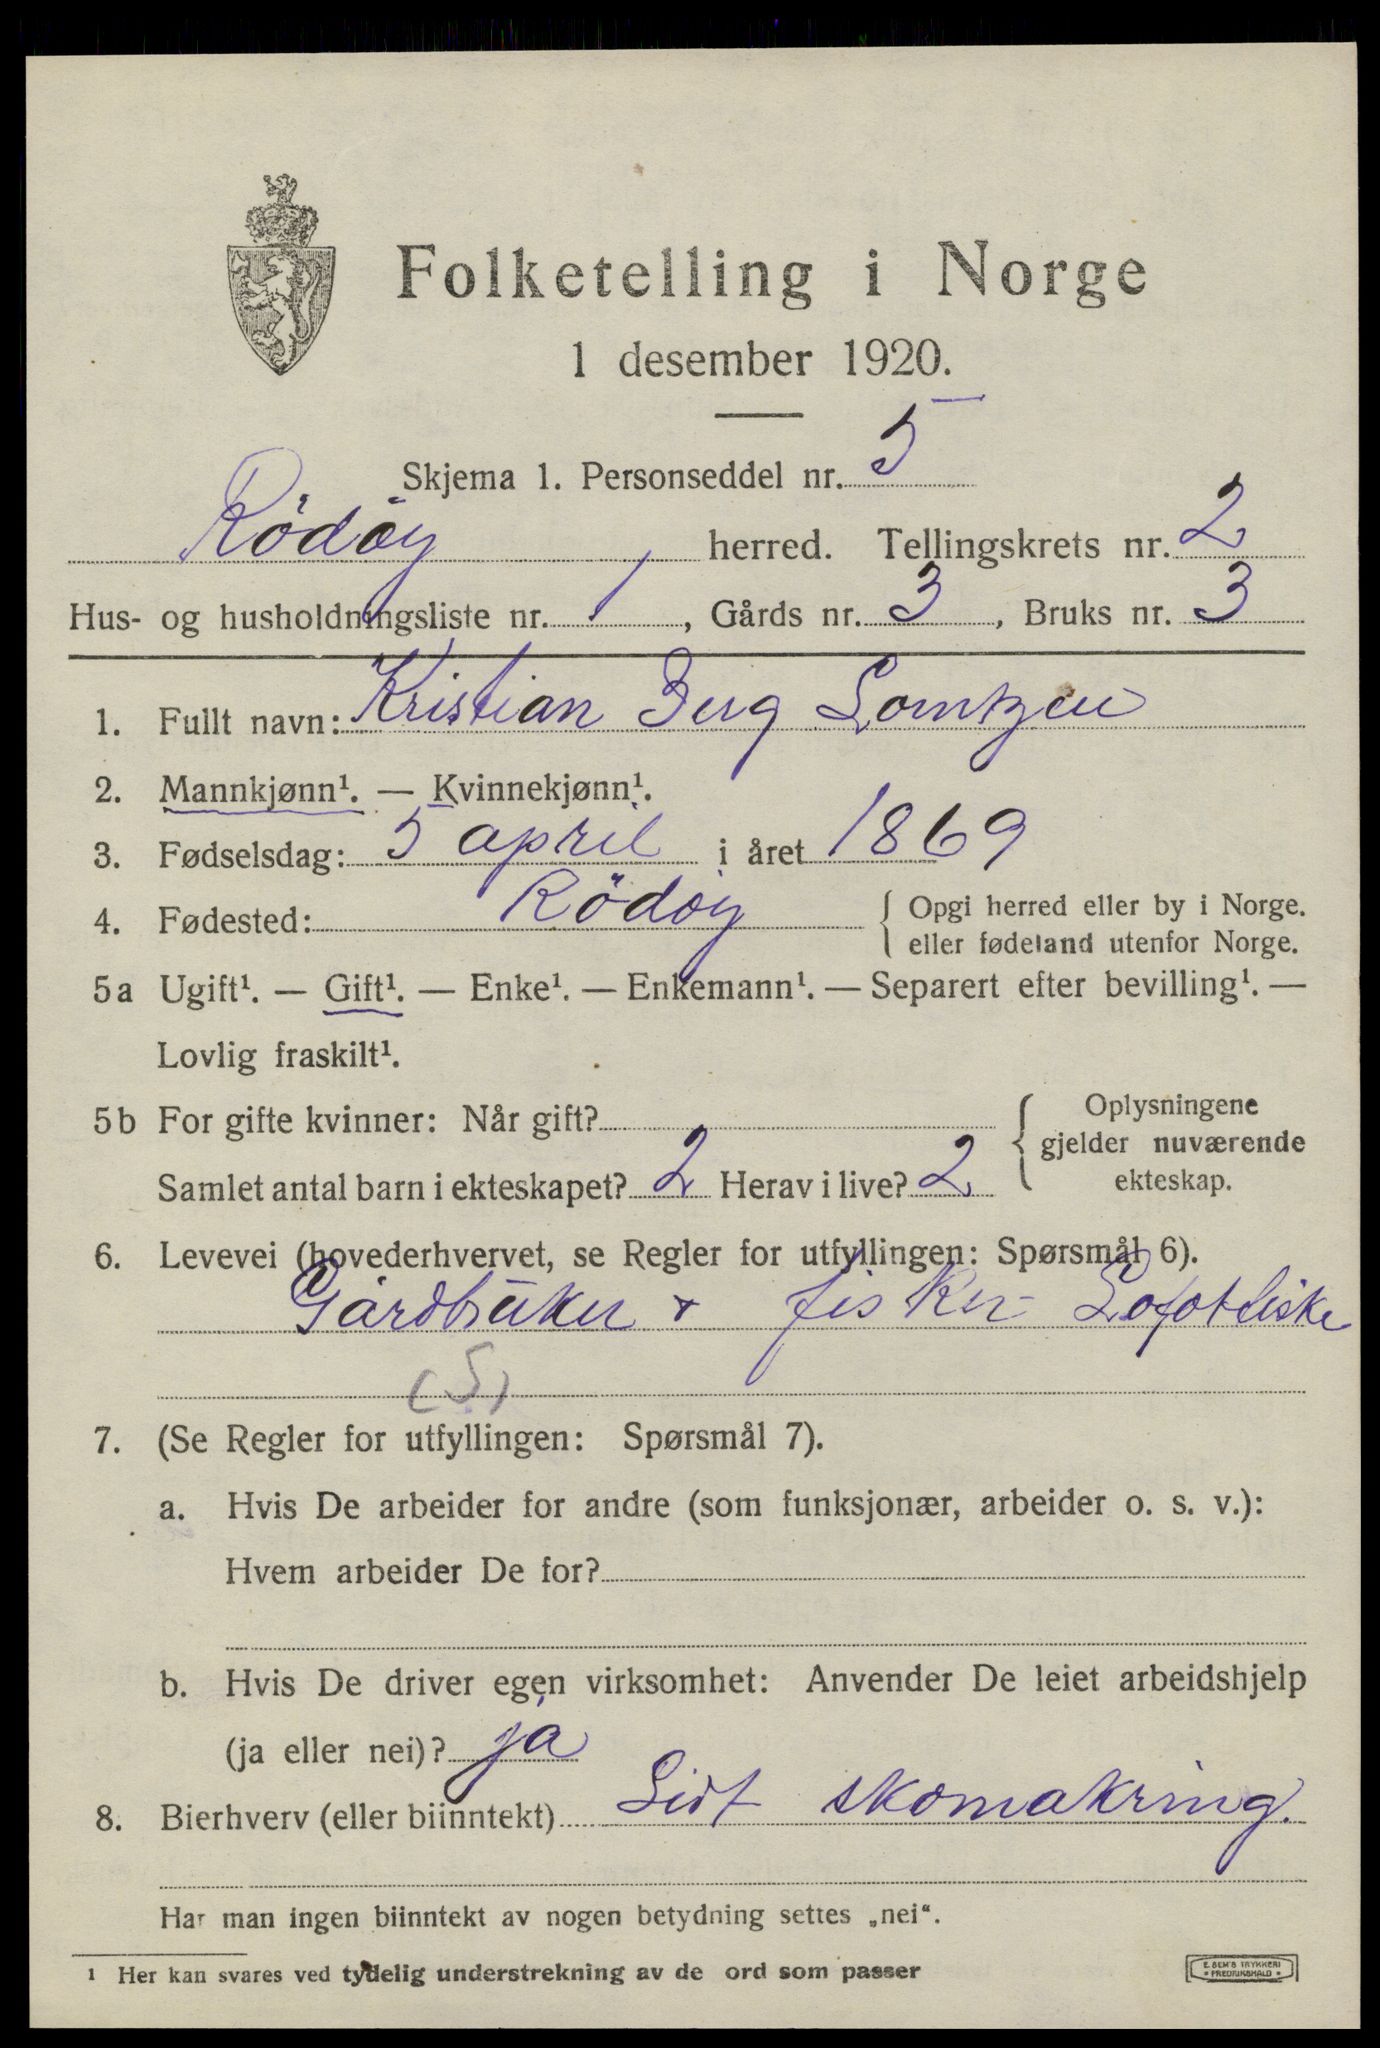 Folketelling i Norge
1 desember 1920.
Skjema 1. Personseddel nr. 5
Rödöy herred. Tellingskrets nr. 2
Hus- og husholdningsliste nr. 1, Gårds nr. 3, Bruks nr. 3
1. Fullt navn: Kristian Berg Lorntzen
2. Mannkjønn¹. — Kvinnekjønn¹.
3. Fødselsdag: 5 april i året 1869
4. Fødested: Rödöy { Opgi herred eller by i Norge.
eller fødeland utenfor Norge.
5a Ugift¹. — Gift¹. — Enke¹. — Enkemann¹. — Separert efter bevilling¹. —
Lovlig fraskilt¹.
5b For gifte kvinner: Når gift? { Oplysningene
gjelder nuværende
ekteskap.
Samlet antal barn i ekteskapet? 2 Herav i live? 2
6. Levevei (hovederhvervet, se Regler for utfyllingen: Spørsmål 6).
Gårdbruker + fisker Lofotfiske
(S)
7. (Se Regler for utfyllingen: Spørsmål 7).
a. Hvis De arbeider for andre (som funksjonær, arbeider o. s. v.):
Hvem arbeider De for?
b. Hvis De driver egen virksomhet: Anvender De leiet arbeidshjelp
(ja eller nei)? ja
8. Bierhverv (eller biinntekt) Lidt skomakring.
Har man ingen biinntekt av nogen betydning settes „nei“.
¹ Her kan svares ved tydelig understrekning av de ord som passer
E. SEM'S TRYKKERI
FREDRIKSHALD